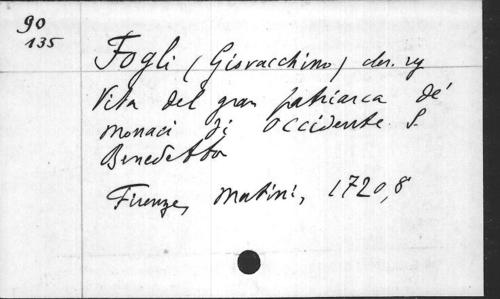 90
135
Fogli (Giovacchino) cler. rg
Vita del gran patriarca de'
monaci di Occidente S.
Benedetto
Firenze, Matini, 1720, 8°